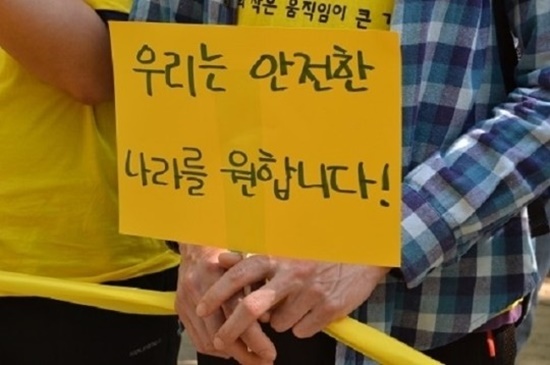 작은 움직임이 큰
우리는 안전한
나라를 원합니다!